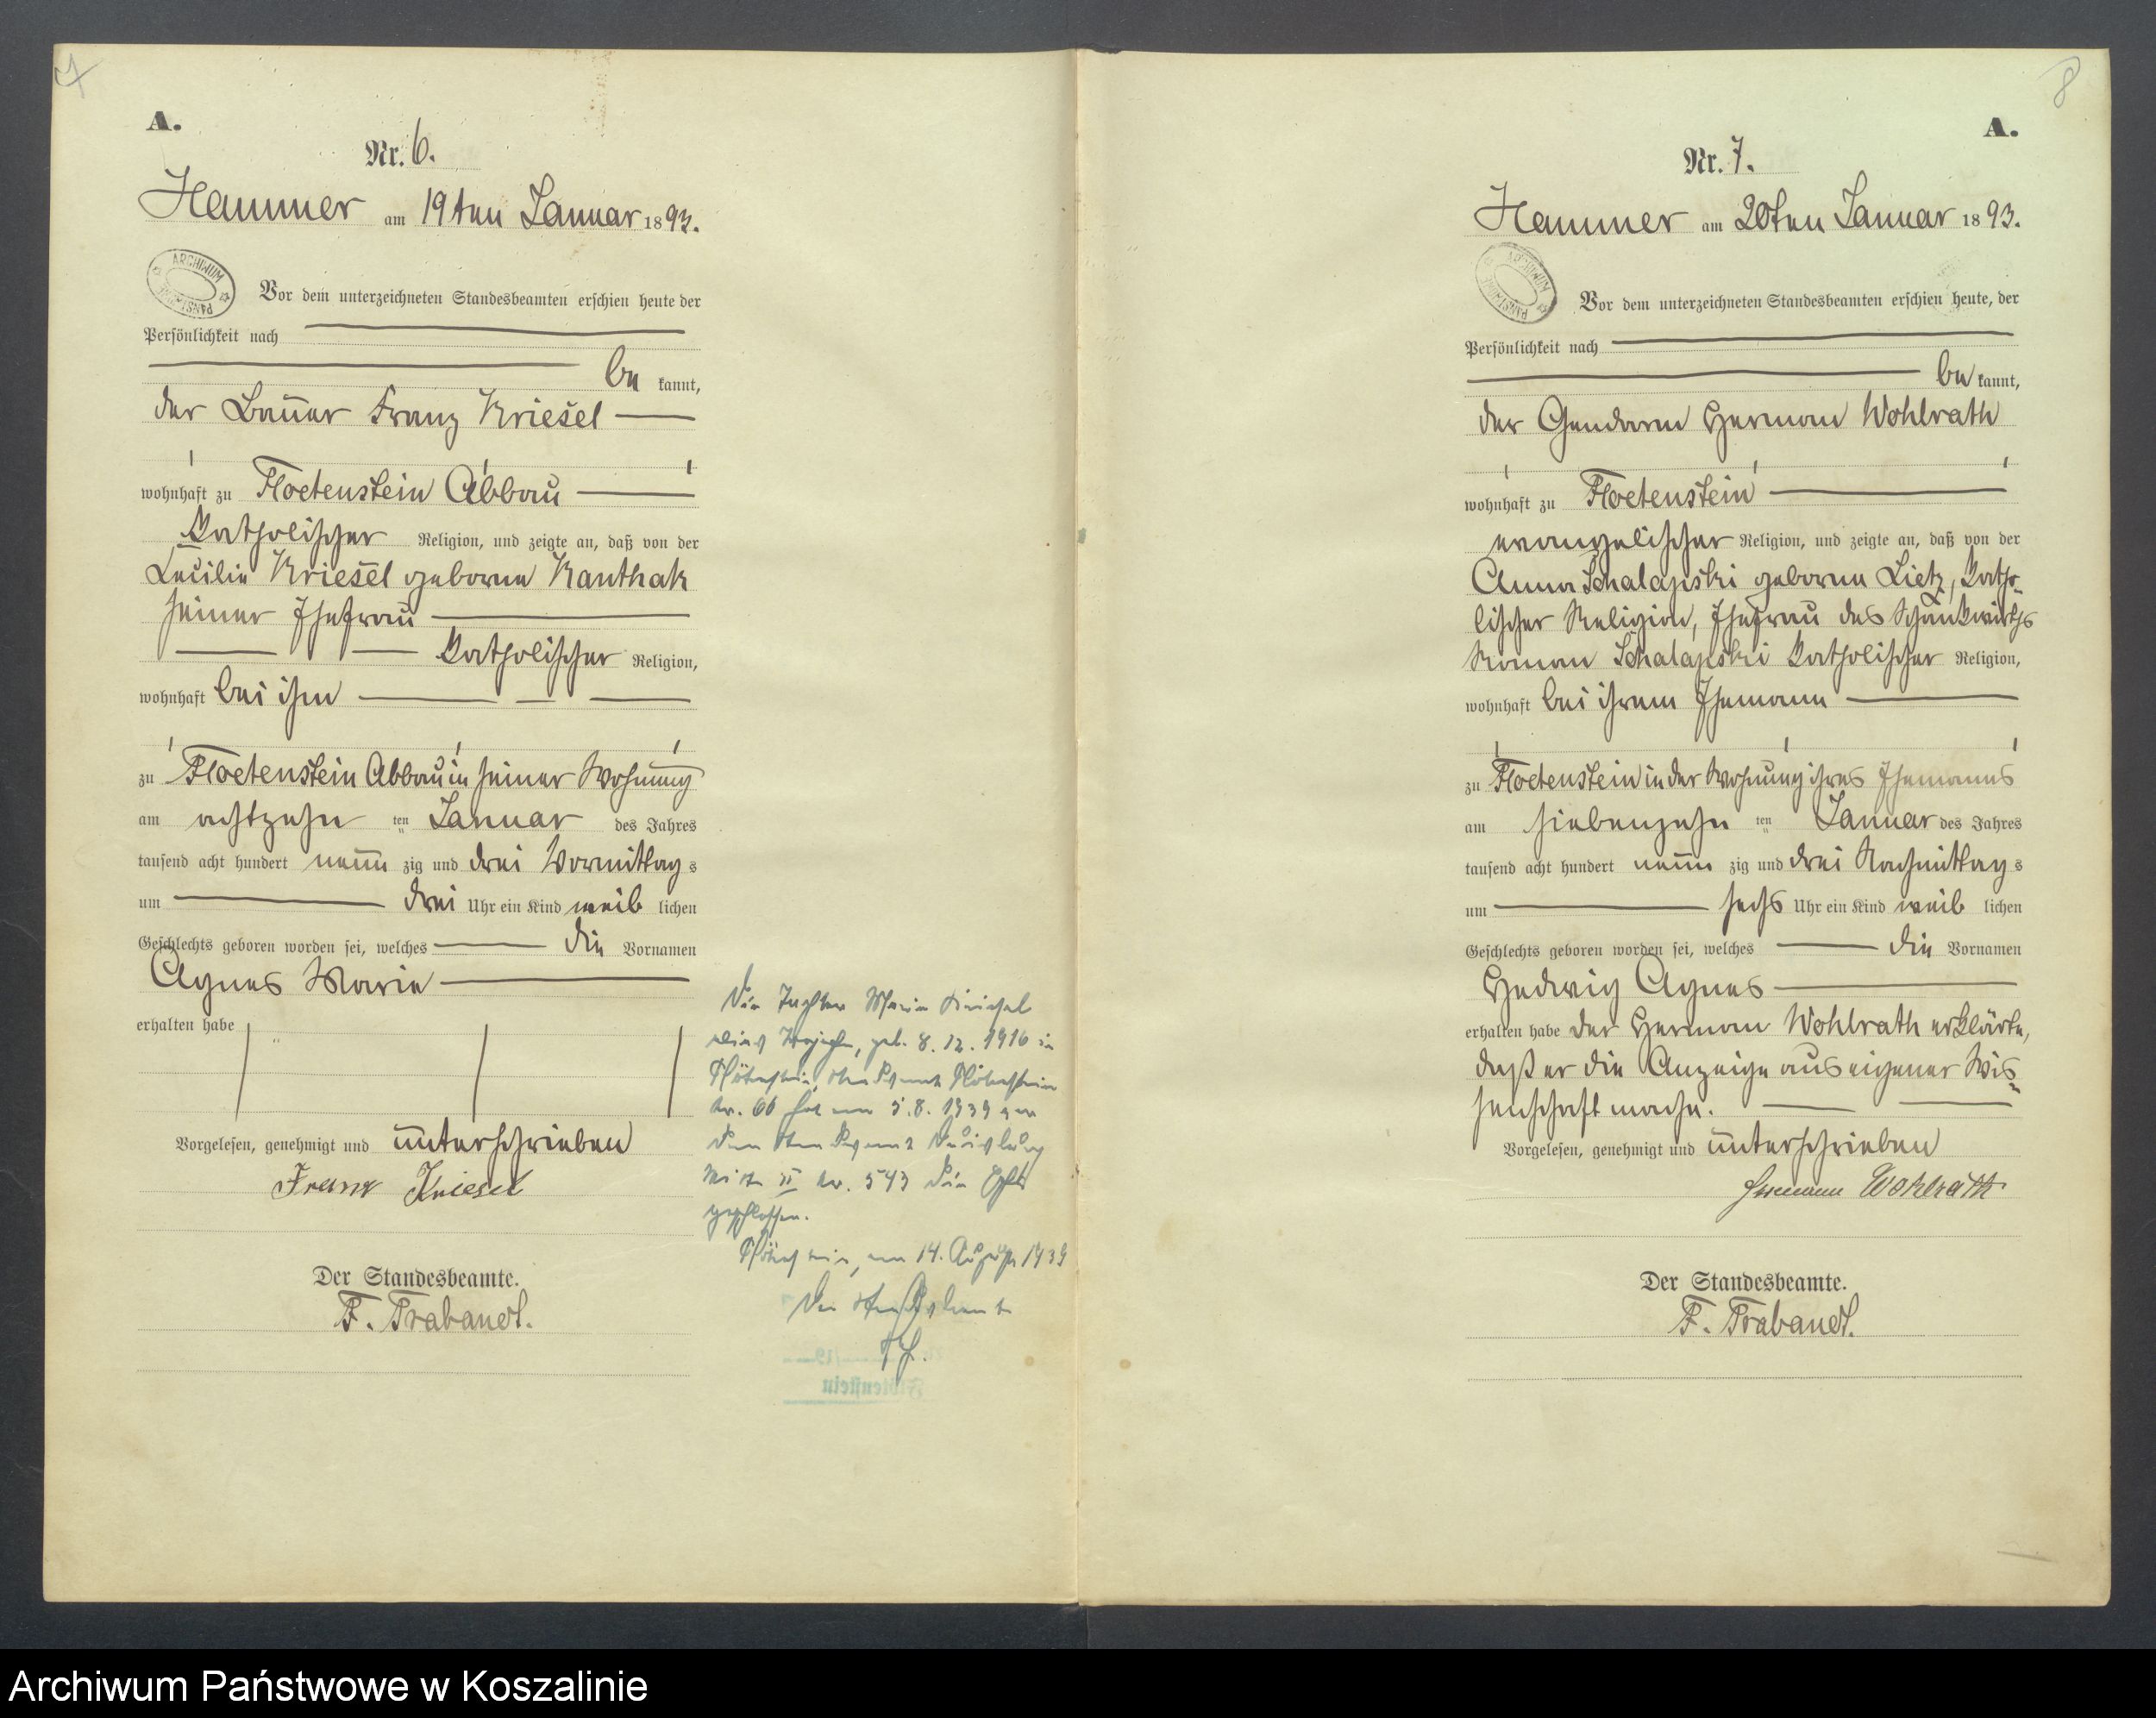 7
A.
Nr. 6.
Hammer am 19ten Januar 1893.
ARCHIWUM PAŃSTWOWE
Vor dem unterzeichneten Standesbeamten erschien heute der
Persönlichkeit nach
be kannt,
der Bauer Franz Kriesel
wohnhaft zu Floetenstein Abbau
katholischer Religion, und zeigte an, daß von der
Cecilie Kriesel geborne Kanthak
seiner Ehefrau
katholischer Religion,
wohnhaft bei ihm
zu Floetenstein Abbau in seiner Wohnung
am achtzehn ten Januar des Jahres
tausend acht hundert neun zig und drei Vormittag s
um drei Uhr ein Kind weib lichen
Geschlechts geboren worden sei, welches die Vornamen
Agnes Marie
erhalten habe
Vorgelesen, genehmigt und unterschrieben
Franz Kriesel
Der Standesbeamte.
F. Trabandt.
Die Tochter Maria
geb. 8.12.1916 in
Flötenstein, Standesamt Flötenstein
Nr. 66 hat am 5.8.1939 vor
dem Standesamt Duisburg
Mitte II Nr. 543 die Ehe
geschlossen.
Flötenstein, am 14. August 1939
Der Standesbeamte
Flötenstein
8
A.
Nr. 7.
Hammer am 20ten Januar 1893.
ARCHIWUM PAŃSTWOWE
Vor dem unterzeichneten Standesbeamten erschien heute, der
Persönlichkeit nach
be kannt,
der Gendarm Herman Wohlrath
wohnhaft zu Floetenstein
evangelischer Religion, und zeigte an, daß von der
Anna Schalapski geborne Lietz, katho-
lischer Religion, Ehefrau des Schankwirths
Roman Schalapski katholischer Religion,
wohnhaft bei ihrem Ehemann
zu Floetenstein in der Wohnung ihres Ehemanns
am siebenzehn ten Januar des Jahres
tausend acht hundert neun zig und drei Nachmittag s
um sechs Uhr ein Kind weib lichen
Geschlechts geboren worden sei, welches die Vornamen
Hedwig Agnes
erhalten habe der Herman Wohlrath erklärte,
daß er die Anzeige aus eigener Wis-
senschaft mache.
Vorgelesen, genehmigt und unterschrieben
Hermann Wohlrath
Der Standesbeamte.
F. Trabandt.
Archiwum Państwowe w Koszalinie